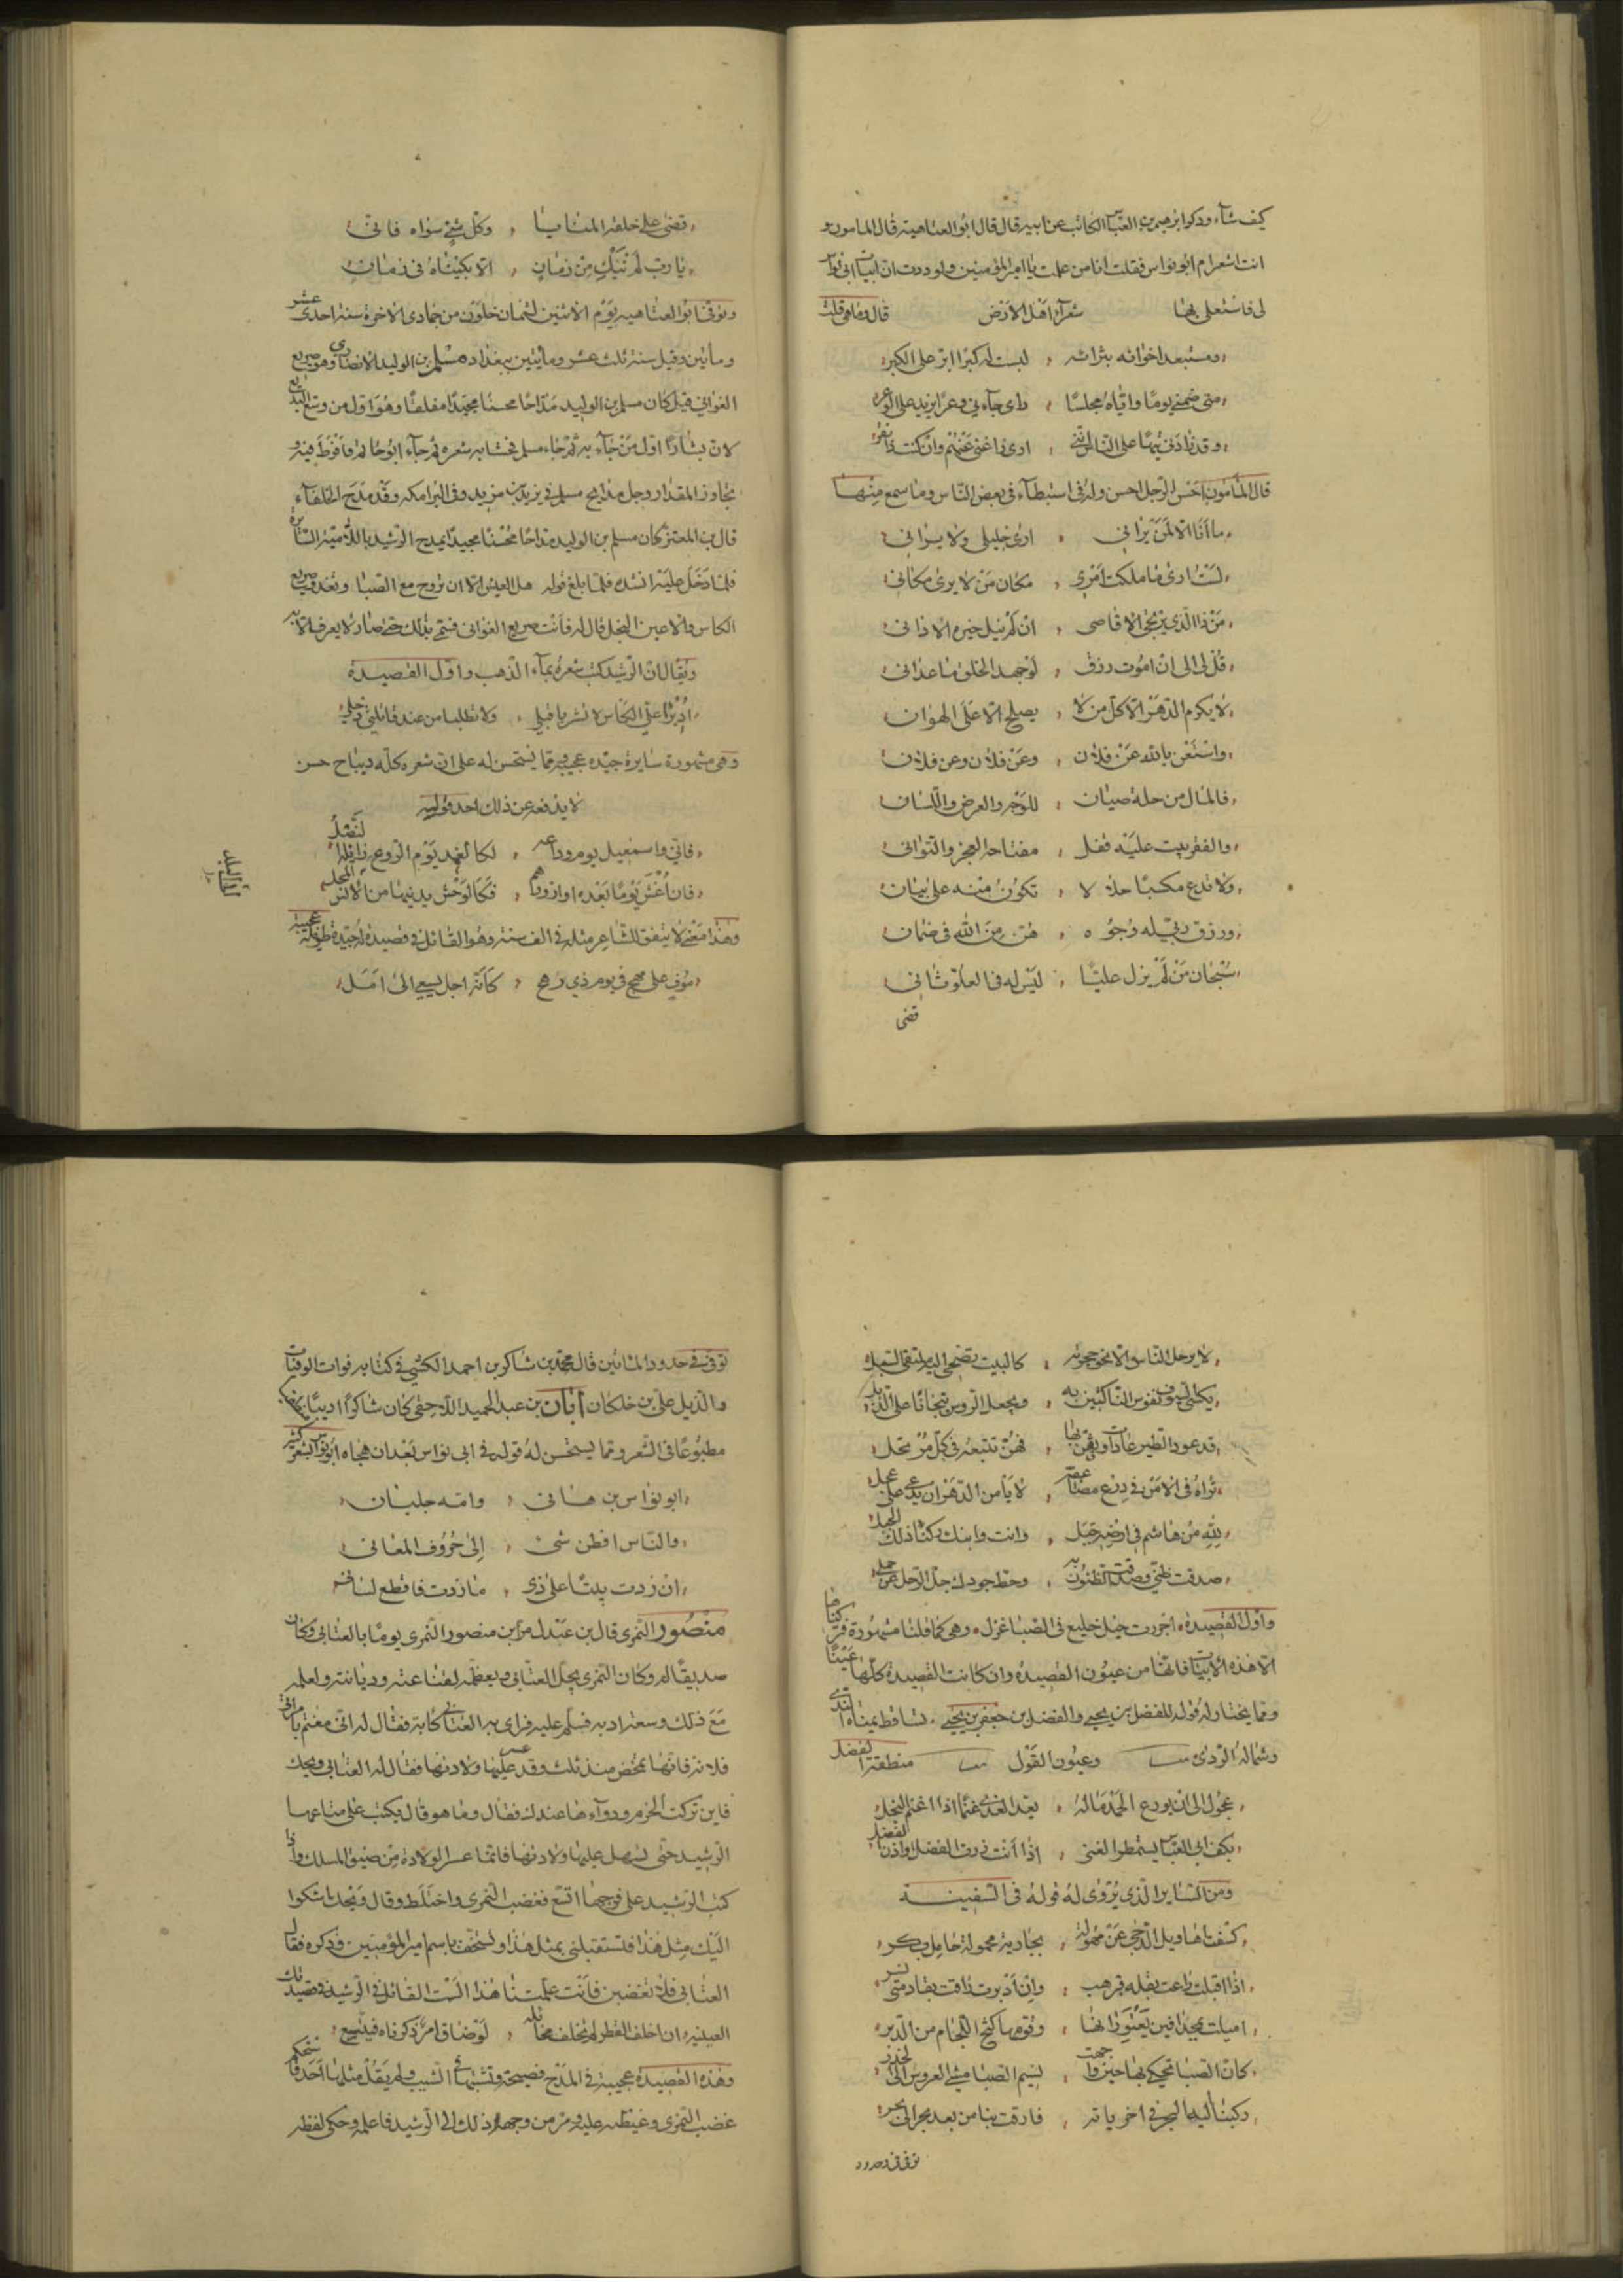 كيف شآء وذكر ابرهيم بن العباس الكاتب عن ابيه قال قال ابو العتاهية قال لي المامون
انت اشعر ام ابو نواس فقلت انا من علمت يا امير المؤمنين ولوددت ان ابيات ابي نواس
لي فاستعلى بها شعرآء اهل الارض قال وما هي قلت
ومستبعد اخوانه بثرائه لبست له كبرا ابر على الكبر
متى ضمني يوما واياه مجلسا راى جانبي وعرا يزيد على الوعر
وقد زادني تيها على الناس انني اراني اغناهم وان كنت ذا فقر
قال المأمون احسن الرجل احسن وله في استبطآء في بعض الناس وما سمع منها
ما انا الا لمن يراني ارى خليلي ولا يراني
لست ارى ما ملكت امري مكان من لا يرى مكاني
من ذا الذي يرتجى الاقاصي ان لم ينل خيره الاداني
قل لي الى ان اموت رزق لو جهد الخلق ما عداني
لا يكرم الدهر الا كل من لا يصلح الا على الهوان
واستغن بالله عن فلان وعن فلان وعن فلان
فالمال من حله صيان للوجه والعرض واللسان
والفقر بيت عليه قفل مفتاحه العجز والتواني
ولا تدع مكسبا حلالا تكون منه على بيان
ورزق ربي له وجوه هن من الله في ضمان
سبحان من لم يزل عليا ليس له في العلو ثاني
قضى
قضى على خلقه المنايا وكل شيء سواه فاني
يا رب لم نبك من زمان الا بكيناه في زمان
وتوفي ابو العتاهيه يوم الاثنين لثمان خلون من جمادى الاخرة سنة احدى عشر
ومأتين وقيل سنة ثلث عشر ومأتين ببغداد مسلم بن الوليد الانصاري وهو صريع
الغواني قيل كان مسلم بن الوليد مداحا محسنا مجيدا مفلقا وهو اول من وسع البديع
لان بشارا اول من جآء به ثم جاء مسلم فحشا به شعره ثم جآء ابو تمام فافرط فيه و
تجاوز المقدار وجل مدايح مسلم في يزيد بن مزيد وفي البرامكه وقد مدح الخلفآء
قال بن المعتز كان مسلم بن الوليد مداحا محسنا مجيدا يمدح الرشيد باللاميه السائرة
فلما دخل عليه انشده فلما بلغ قوله هل العيش الا ان تروح مع الصبا وتغدو صريع
الكاس والاعين النجل قال له فانت صريع الغواني فسمي بذلك حتى صار لا يعرف الا به
ويقال ان الرشيد كتب شعره بمآء الذهب واول القصيدة
اديرا علي الكاس لا تشربا قبلي ولا تطلبا من عند قاتلتي ذحلي
وهي مشهورة سايرة جيده عجيبه ومما يستحسن له على ان شعره كله ديباح حسن
لا يدفعه عن ذلك احد قوله
فاني واسمعيل يوم وداعه لكالغمد يوم الروع زايله النصل
فان اغش يوما بعده او ازورهم فكالوحش يدنيها من الانس المحل
وهذا معنى لا يتفق للشاعر مثله في الف سنه وهو القائل في قصيدة له جيدة طويلة عجيبة
موف على مهج في يوم ذي رهج كانه اجل يسعى الى امل
لا يرحل الناس الا نحو حجرته كالبيت يضحى اليه ملتقى السبل
يكسي السيوف نفوس الناكثين به ويجعل الروس تيجانا على الذبل
قد عود الطير عادات وثقن بها فهن تتبعه في كل مرتحل
تراه في الامن في درع مضاعفة لا يأمن الدهر ان يدعى على عجل
لله من هاشم في ارضه جبل وانت وابنك ركنا ذلك الجبل
صدقت ظني وصدقت الظنون به وحط جودك حل الرحل عن جملي
واول القصيدة اجررت حبل خليع في الصبا غزل وهي كما قلنا مشهورة
الا هذه الابيات فانها من عيون القصيدة وان كانت القصيدة كلها عينا
ومما يختار له قوله للفضل بن يحيى والفضل بن جعفر بن يحيى تساقط يمناه الندى
وشماله الردى وعيون القول منطقه الفضل
عجول الى ان يودع الحمد ماله يعد الندى غنما اذا اغتنم البخل
بكف ابي العباس يستمطر الغنى
ومن الساير الذي يروى له قوله في السفينة
كشفت اهاويل الدجى عن مهوله بجارية محمولة حامل بكر
اذا اقبلت راعت بقلة قرهب وان ادبرت راقت بقادمتي نسر
اميلت بمجدافين يعتورانها وقومها كبح اللجام من الدبر
كان الصبا تحكي بها حين واجهت نسيم الصبا مشي العروس الى الخدر
ركبنا اليه البحر في اخرياته فاوقت بنا من بعد بحر الى بحر
توفي في حدود
توفي في حدود المائتين قال محمد بن شاكر بن احمد الكتبي في كتابه فوات الوفيات
والذيل على بن خلكان أبان بن عبد الحميد اللاحقي كان شاكرا اديبا
مطبوعا في الشعر ومما يستحسن له قوله في ابي نواس بعد ان هجاه ابو نواس بشعر كثير
ابو نواس بن هاني وامه جلبان
والناس افطن شيء الى حروف المعاني
ان زدت بيتا على ذي ما زدت فاقطع لساني
منصور النمري قال بن عبدل مر ابن منصور النمري يوما بالعتابي وكان
صديقا له وكان النمري يجل العتابي ويعظمه لقناعته وديانته ولعلمه
مع ذلك وسعة ادبه فسلم عليه فراى به العتابي كآبة فقال له اني مغتم بامراتي
فلانه فانها تمخض منذ ثلث وقد عسر عليها ولادتها فقال له العتابي ويحك
فاين تركت الحزم ودوآءها عندك فقال وما هو قال يكتب على متاعها
الرشيد حتى يسهل عليها ولادتها فانما عسر الولادة من ضيق المسلك واذا
كتب الرشيد على فرجها اتسع فغضب النمري واختلط وقال ويحك اشكوا
اليك مثل هذا فتستقبلني بمثل هذا وتستخف باسم امير المؤمنين وذكره فقال
العتابي فلا تغضبن فانت علمتنا هذا الست القائل في الرشيد في قصيدتك
العينيه ان اخلف القطر لم تخلف مخائله او ضاق امر ذكرناه فيتسع
وهذه القصيدة عجيبة في المدح فصيحة وتشبيبها في الشيب ولم يقل مثلها احد
غضب النمري وغيظه عليه ومر من وجهه ذلك الى الرشيد فاعلمه وحكى لفظه